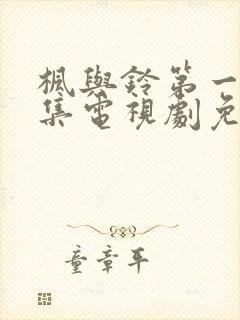 楓與鈴第一
集電視劇免
童章平